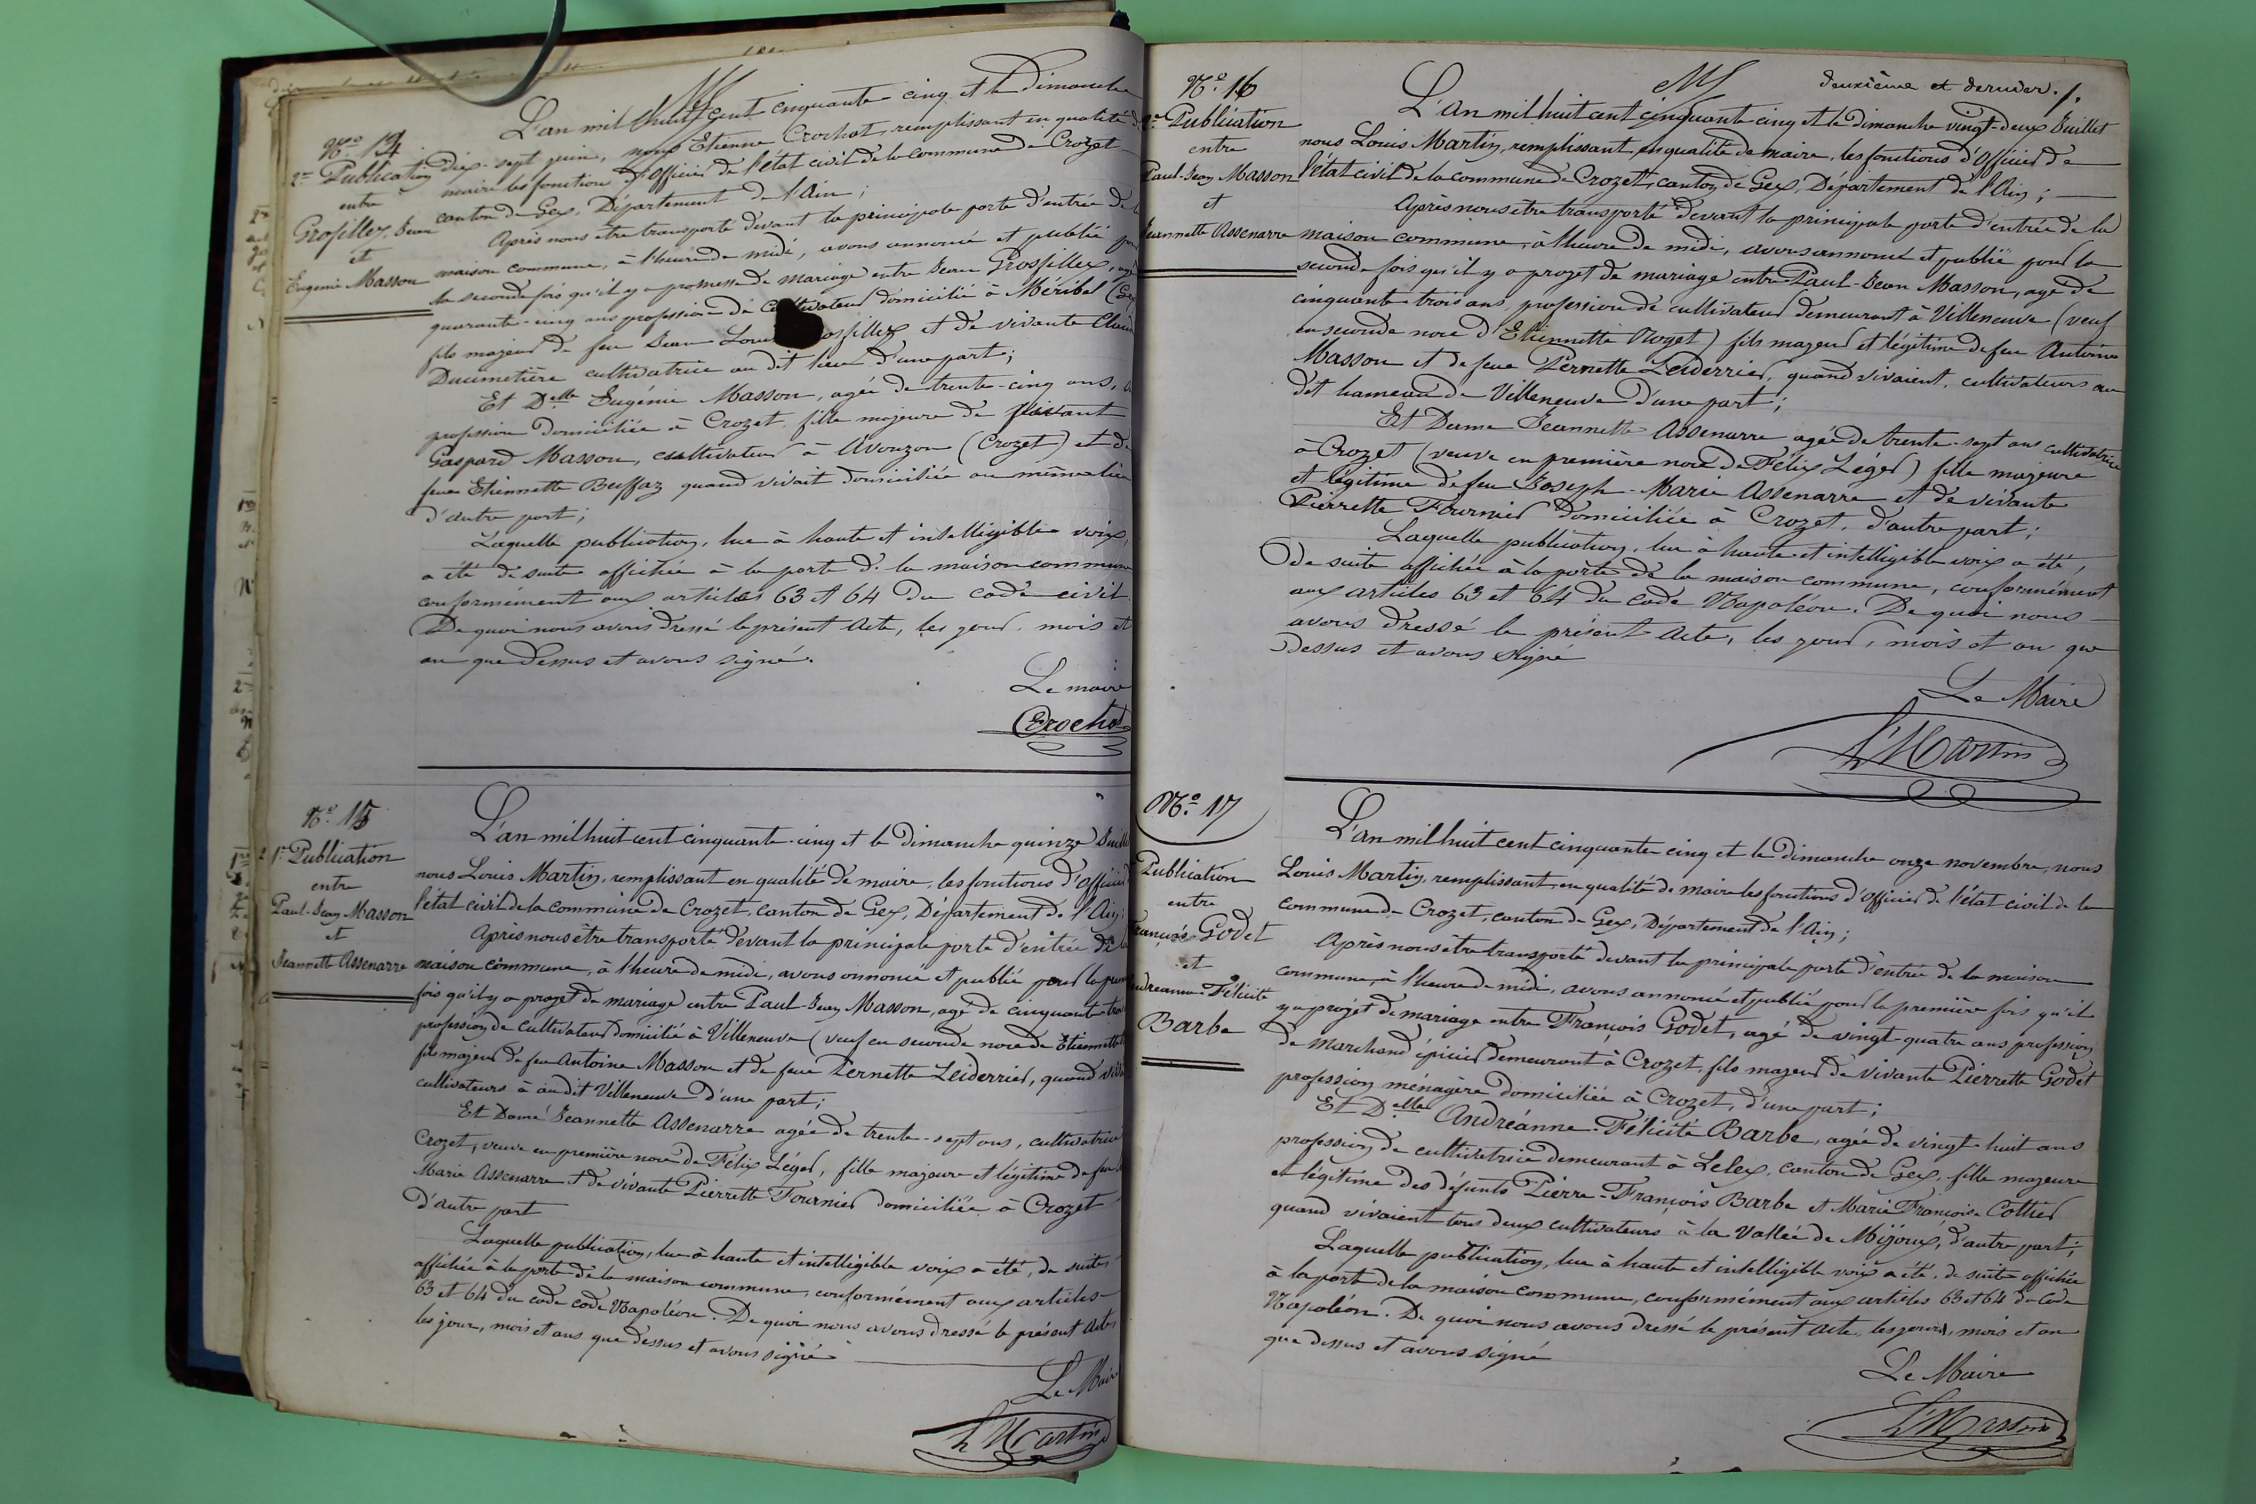 N° 14
2me Publication
entre
Grosfillex, Jean
et
Eugénie Masson
L'an mil huit cent cinquante cinq et le Dimanche
dix-sept juin, nous Etienne Crochat, remplissant en qualité de
maire les fonctions d'Officier de l'état civil de la commune de Crozet
canton de Gex, Département de l'Ain;
Après nous être transporté devant la principale porte d'entrée de la
maison commune, à l'heure de midi, avons annoncé et publié pour
la seconde fois qu'il y a promesse de mariage entre Jean Grosfillex, agé
quarante-cinq ans profession de cultivateur domicilié à Méribel
fils majeur de feu Jean Louis Grosfillex et de vivante
Ducimetière cultivatrice au dit lieu d'une part;
Et Delle Eugénie Masson, agée de trente-cinq ans,
profession domiciliée à Crozet, fille majeure de vivant
Gaspard Masson, cultivateur à Avouzon (Crozet) et de
feue Etiennette Buffaz quand vivait domiciliée au même lieu
d'autre part;
Laquelle publication, lue à haute et intelligible voix,
a été de suite affichée à la porte de la maison commune
conformément aux articles 63 et 64 du code civil.
De quoi nous avons dressé le présent Acte, les jour, mois et
an que dessus et avons signé.
Le maire
Crochat
N° 15
1e Publication
entre
Paul-Jean Masson
et
Jeannette Assenarre
L'an mil huit cent cinquante-cinq et le dimanche quinze Juillet
nous Louis Martin, remplissant en qualité de maire, les fonctions d'officier
l'état civil de la commune de Crozet, canton de Gex, Département de l'Ain;
Après nous être transporté devant la principale porte d'entrée de la
maison commune, à l'heure de midi, avons annoncé et publié pour la
fois qu'il y a projet de mariage entre Paul-Jean Masson, agé de cinquante-trois
profession de cultivateur domicilié à Villeneuve (veuf en seconde noce de Etiennette
fils majeur de feu Antoine Masson et de feue Pernette Leiderrier, quand
cultivateurs à audit Villeneuve d'une part;
Et Dame Jeannette Assenarre agée de trente-sept ans, cultivatrice
Crozet, veuve en première noce de Félix Léger, fille majeure et légitime de feu
Marie Assenarre et de vivante Pierrette Fournier domiciliée à Crozet
d'autre part
Laquelle publication, lue à haute et intelligible voix a été, de suite,
affichée à la porte de la maison commune, conformément aux articles
63 et 64 du code code Napoléon. De quoi nous avons dressé le présent Acte
les jour, mois et ans que dessus et avons signé
Le Maire
L Martin
N° 16
deuxième et dernier./.
2e Publication
entre
Paul-Jean Masson
et
Jeannette Assenarre
L'An mil huit cent cinquante cinq et le dimanche vingt-deux Juillet
nous Louis Martin, remplissant en qualité de maire, les fonctions d'Officier de
l'état civil de la commune de Crozet, canton de Gex, Département de l'Ain;
Après nous être transporté devant la principale porte d'entrée de la
maison commune, à l'heure de midi, avons annoncé et publié pour la
seconde fois qu'il y a projet de mariage entre Paul-Jean Masson, agé de
cinquante trois ans, profession de cultivateur demeurant à Villeneuve (veuf
en seconde noce d'Etiennette) fils majeur et légitime de feu Antoine
Masson et de feue Pernette Leiderrier, quand vivaient, cultivateurs au
dit hameau de Villeneuve d'une part;
Et Dame Jeannette Assenarre agée de trente-sept ans cultivatrice
à Crozet (veuve en première noce de Félix Léger) fille majeure
et légitime de feu Joseph-Marie Assenarre et de vivante
Pierrette Fournier domiciliée à Crozet, d'autre part;
Laquelle publication, lue à haute et intelligible voix a été,
de suite affichée à la porte de la maison commune, conformément
aux articles 63 et 64 du code Napoléon. De quoi nous
avons dressé le présent Acte, les jour, mois et an que
dessus et avons signé
Le Maire
L Martin
N° 17
Publication
entre
François Godet
et
Andréanne-Félicité
Barbe
L'an mil huit cent cinquante cinq et le dimanche onze novembre, nous
Louis Martin, remplissant en qualité de maire les fonctions d'Officier de l'état civil de la
commune de Crozet, canton de Gex, Département de l'Ain;
Après nous être transporté devant la principale porte d'entrée de la maison
commune, à l'heure de midi, avons annoncé et publié pour la première fois qu'il
y a projet de mariage entre François Godet, agé de vingt-quatre ans profession
de marchand épicier demeurant à Crozet, fils majeur de vivante Pierrette Godet
profession ménagère domiciliée à Crozet, d'une part;
Et Delle Andréanne-Félicité Barbe, agée de vingt-huit ans
profession de cultivatrice demeurant à Lelex, canton de Gex, fille majeure
et légitime des défunts Pierre-François Barbe et Marie Françoise Cottier
quand vivaient tous deux cultivateurs à la Vallée de Mijoux, d'autre part;
Laquelle publication, lue à haute et intelligible voix a été, de suite affichée
à la porte de la maison commune, conformément aux articles 63 et 64 du Code
Napoléon. De quoi nous avons dressé le présent Acte, les jour, mois et an
que dessus et avons signé
Le Maire
L Martin